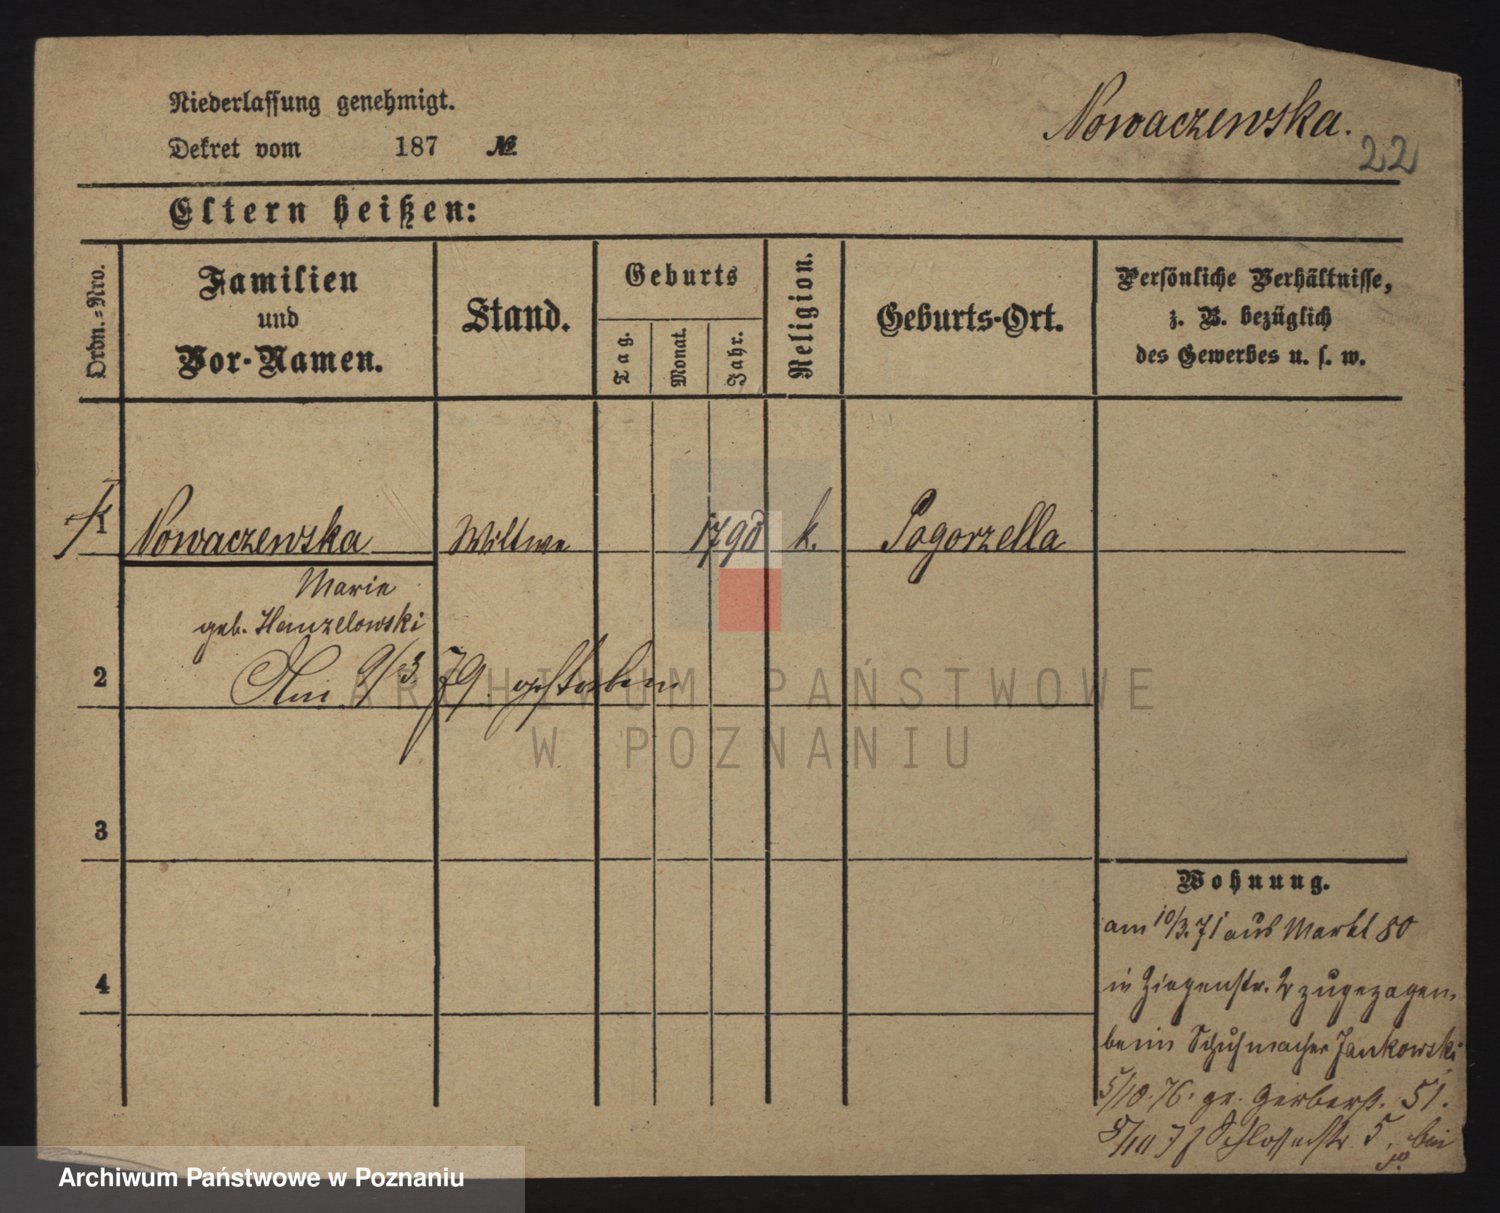 Niederlassung genehmigt.
Nowaczewska.
Dekret vom 187 №
22
Eltern heißen:
Ordn.-Nro.
Familien
und
Vor-Namen.
Stand.
Geburts
Tag.
Monat.
Jahr.
Religion.
Geburts-Ort.
Persönliche Verhältnisse,
z. B. bezüglich
des Gewerbes u. s. w.
1 Nowaczewska Wittwe 1798 k. Pogorzella
Marie
geb. Hanzelowski
2 Am 9/3 79 gestorben
ARCHIWUM PAŃSTWOWE
W POZNANIU
3
Wohnung.
am 10/3. 71 aus Markt 80
4
in Ziegenstr. 2 zugezogen,
beim Schuhmacher Jankowski
5/10. 76. gr. Gerberst. 51.
5/10 77 Schlosserstr 5. bei
Archiwum Państwowe w Poznaniu